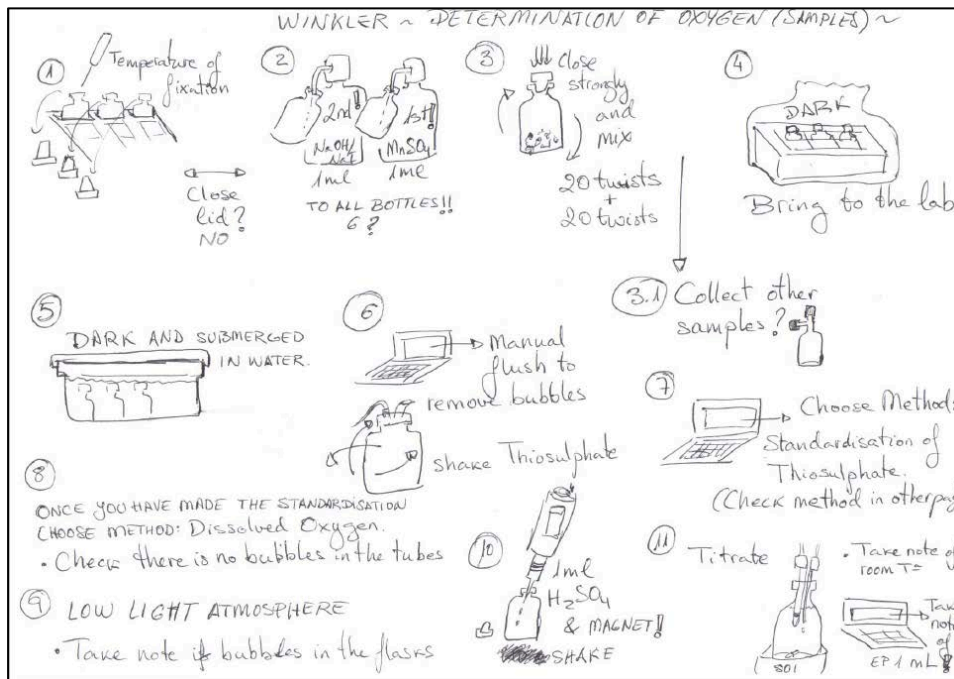 WINKLER ~ DETERMINATION OF OXYGEN (SAMPLES) ~
1
Temperature of
fixation
Close
lid?
NO
2
2nd!!
1st!!
NaOH/
NaI
MnSO4
1ml
1ml
TO ALL BOTTLES!!
6?
3
Close
strongly
and
mix
20 twists
+
20 twists
4
DARK
Bring to the lab
3.1 Collect other
samples?
5
DARK AND SUBMERGED
IN WATER.
6
Manual
flush to
remove bubbles
shake Thiosulphate
7
Choose Method:
Standardisation of
Thiosulphate.
(Check method in other pag
8
ONCE YOU HAVE MADE THE STANDARDISATION
CHOOSE METHOD: Dissolved Oxygen.
• Check there is no bubbles in the tubes
9 LOW LIGHT ATMOSPHERE
• Take note if bubbles in the flasks
10
1ml
H2SO4
& MAGNET!!
SHAKE
11
Titrate
• Take note of
room T=
Take
note
of
EP 1 mL